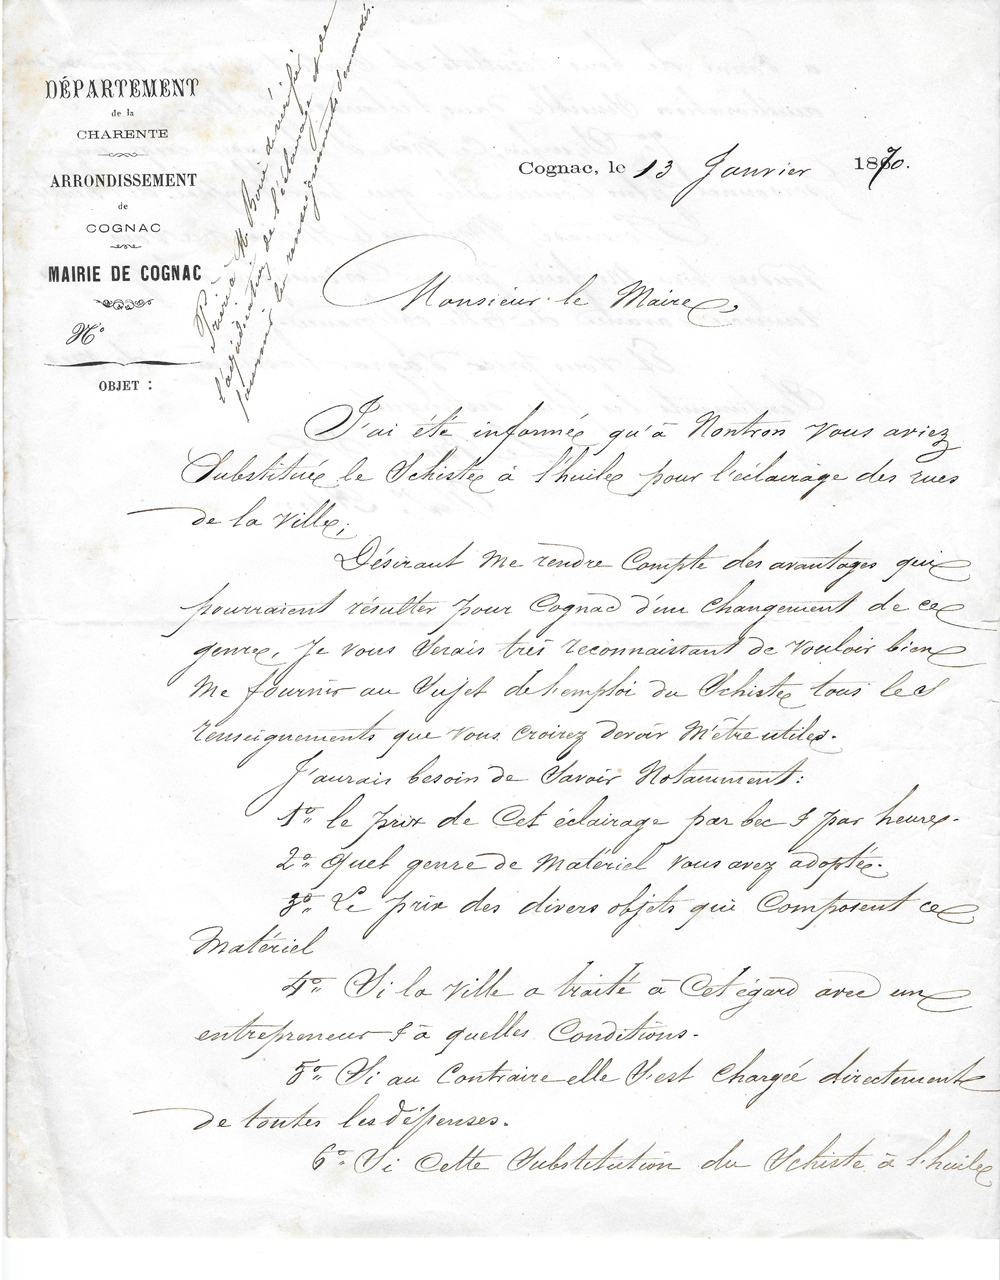 DÉPARTEMENT
de la
CHARENTE
ARRONDISSEMENT
de
COGNAC
MAIRIE DE COGNAC
N°
OBJET :
Prière à M. de vérifier
l'adjudication de l'éclairage et de
fournir les renseignements demandés.
Cognac, le 13 Janvier 1870.
Monsieur le Maire,
J'ai été informé qu'à Nontron vous aviez
Substitué le Schiste à l'huile pour l'éclairage des rues
de la Ville;
Désirant me rendre Compte des avantages qui
pourraient résulter pour Cognac d'un changement de ce
genre, Je vous Serais très reconnaissant de vouloir bien
me fournir au Sujet de l'emploi du Schiste tous les
renseignements que vous croirez devoir m'être utiles.
J'aurais besoin de Savoir Notamment :
1° le prix de Cet éclairage par bec & par heure.
2° Quel genre de Matériel vous avez adopté.
3° Le prix des divers objets qui Composent ce
Matériel
4° Si la Ville a traité à Cet égard avec un
entrepreneur & à quelles Conditions.
5° Si au Contraire elle S'est chargée directement
de toutes les dépenses.
6° Si Cette Substitution du Schiste à l'huile